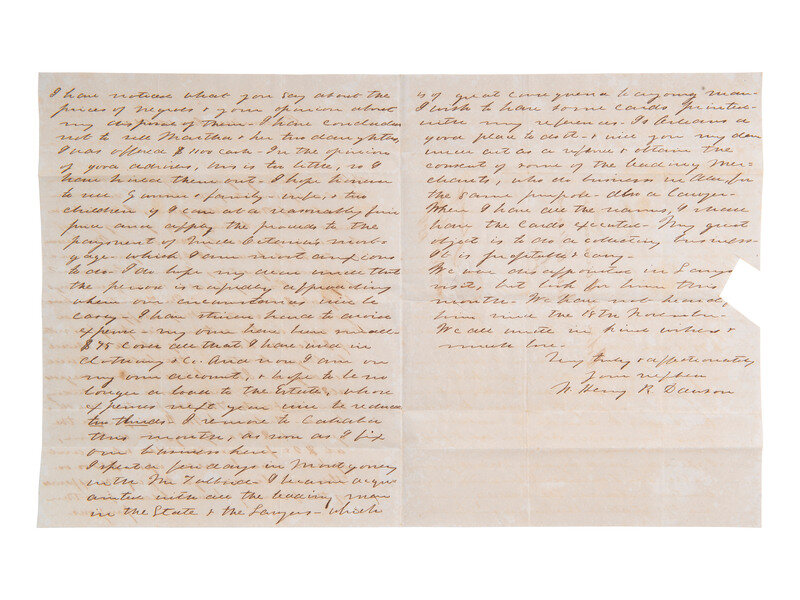 I have noticed what you say about the
prices of negroes & your opinion about
my dispose of them - I have concluded
not to sell Martha & her two daughters,
I was offered $1100 cash - In the opinion
of good advisers, this is too little, so I
have hired them out - I hope however
to sell & family - wife, & two
children if I can at a reasonably fair
price and apply the proceeds to the
payment of Uncle mort-
gage - which I am most anxious
to do. I do hope my dear uncle that
the period is rapidly approaching
when our circumstances will be
easy. I have striven hard to avoid
expense - my own have been small -
$75 cover all that I have used in
clothing & C. And now I am on
my own account, & hope to be no
longer a load to the Estate, whose
expenses next year will be reduced
two thirds - I remove to Cahaba
this month, as soon as I fix
our business here.
I spent a few days in Montgomery
with Mr I became acqu-
ainted with all the leading men
in the State & the Lawyers - which
is of great consequence to a young man -
I wish to have some cards printed -
with my references. Is Orleans a
good place to do it - & will you my dear
uncle act as a reference & obtain the
consent of some of the leading Mer-
chants, who do business in Ala. for
the same purpose - also a Lawyer -
When I have all the names, I shall
have the cards executed - My great
object is to do a collecting business -
It is profitable & easy.
We were disappointed in
visit, but look for him this
month - We have not heard
him since the 18th November.
We all unite in kind wishes &
much love.
Very truly & affectionately
Your nephew
N. Henry R. Dawson